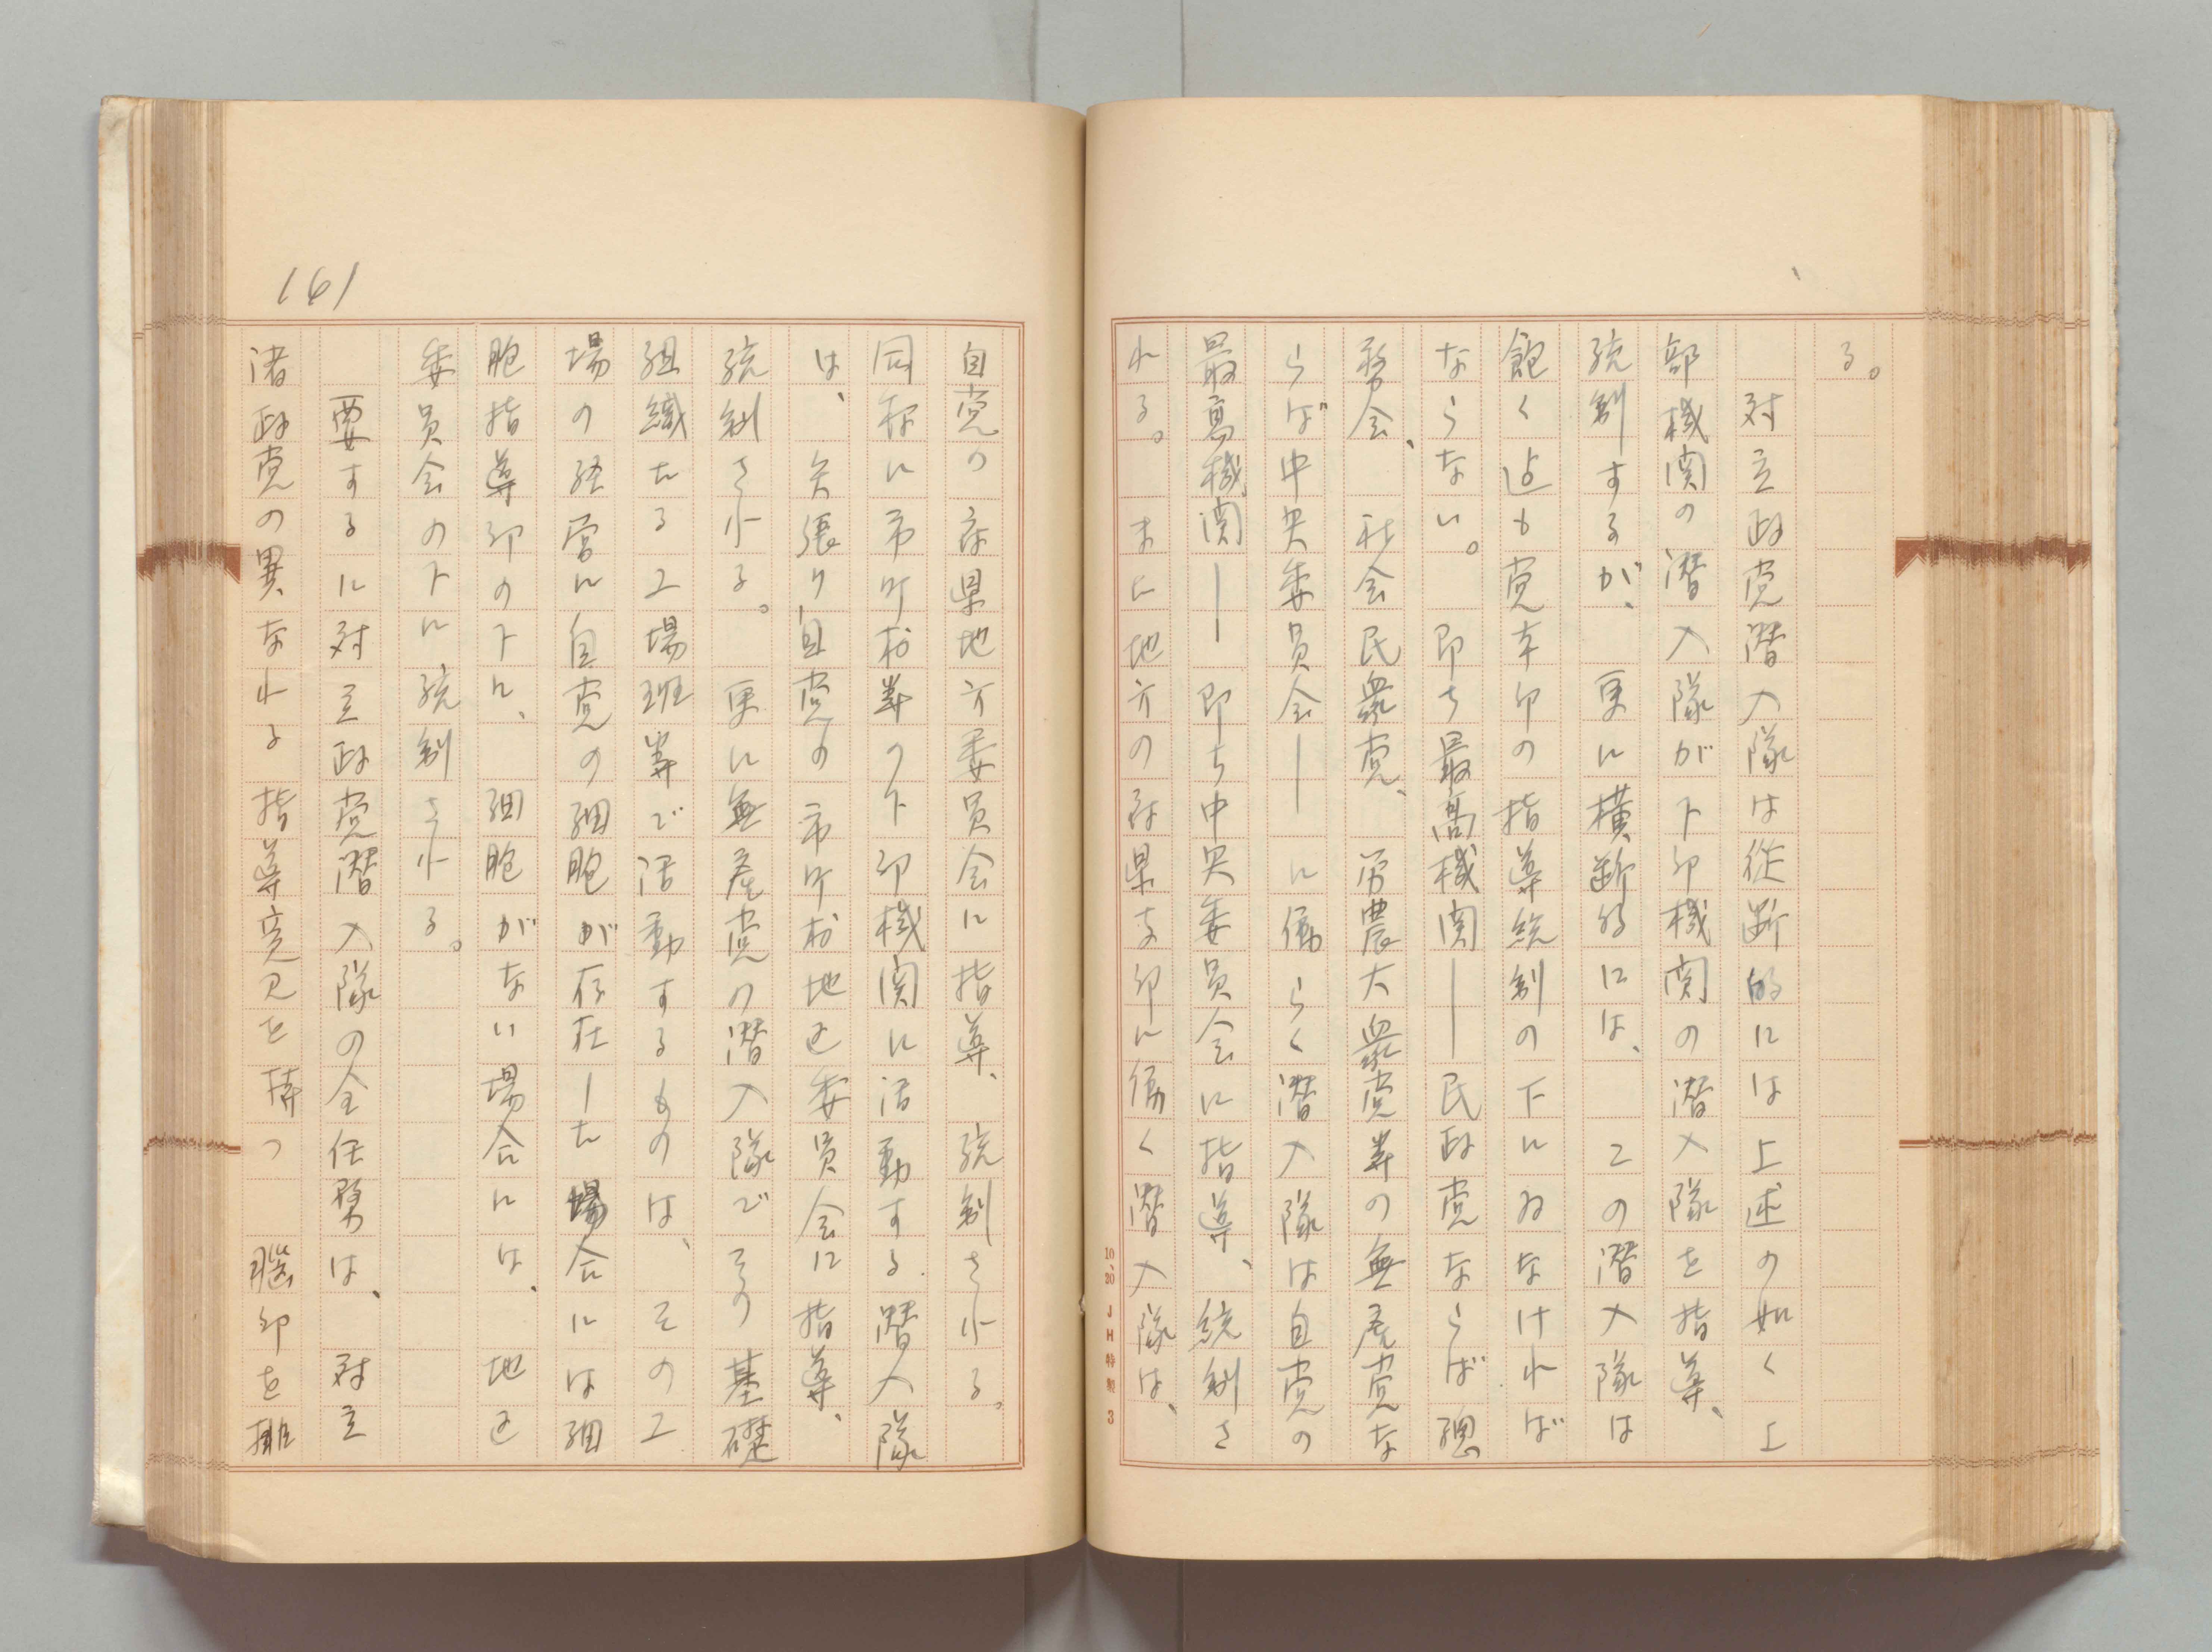 る。
対立政党潜入隊は従断的には上述の如く上
部機関の潜入隊が下部機関の潜入隊を指導、
統制するが、更に横断的には、この潜入隊は
飽く迄も党本部の指導統制の下にゐなければ
ならない。即ち最高機関——民政党ならば総
務会、社会民衆党、労農大衆党等の無産党な
らば中央委員会——に働らく潜入隊は自党の
最高機関——即ち中央委員会に指導、統制さ
れる。また地方の府県支部に働く潜入隊は、
10.20 JH特製 3
161
自党の府県地方委員会に指導、統制される。
同様に市町村等の下部機関に活動する潜入隊
は、矢張り自党の市町村地区委員会に指導、
統制される。更に無産党の潜入隊でその基礎
組織たる工場班等で活動するものは、その工
場の経営に自党の細胞が存在した場合には細
胞指導部の下に、細胞がない場合には、地区
委員会の下に統制される。
要するに対立政党潜入隊の全任務は、対立
諸政党の異なれる指導意見を持つ 脳部を排